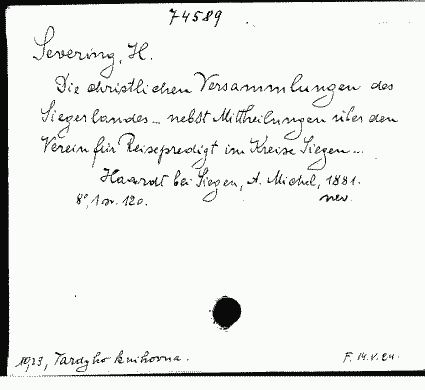 74589
Severing, H.
Die christlichen Versammlungen des
Siegerlandes... nebst Mittheilungen über den
Verein für Reisepredigt im Kreise Siegen...
Haardt bei Siegen, A. Michel, 1881.
8°, 1 sv. 120. nev.
1923, Tardyho knihovna. F. 14.V.24.